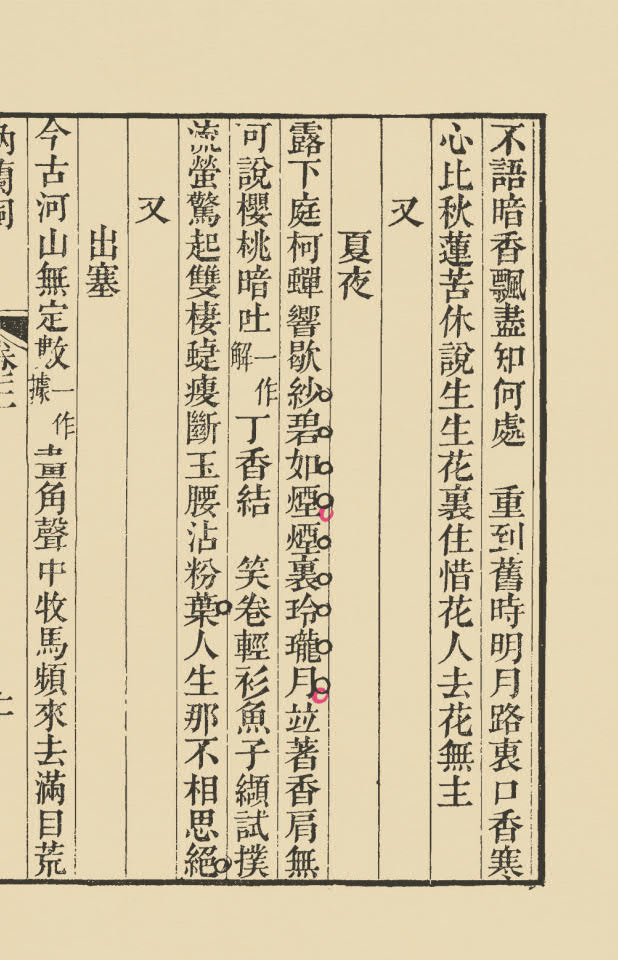 不語暗香飄盡知何處　重到舊時明月路裏口香寒
心比秋蓮苦休說生生花裏住惜花人去花無主
又
夏夜
露下庭柯蟬響歇紗碧如煙煙裏玲瓏月竝著香肩無
可說櫻桃暗吐一作解丁香結　笑卷輕衫魚子纈試撲
流螢驚起雙棲蜨瘦斷玉腰沾粉葉人生那不相思絕
又
出塞
今古河山無定數一作據畫角聲中牧馬頻來去滿目荒
納蘭詞
卷三